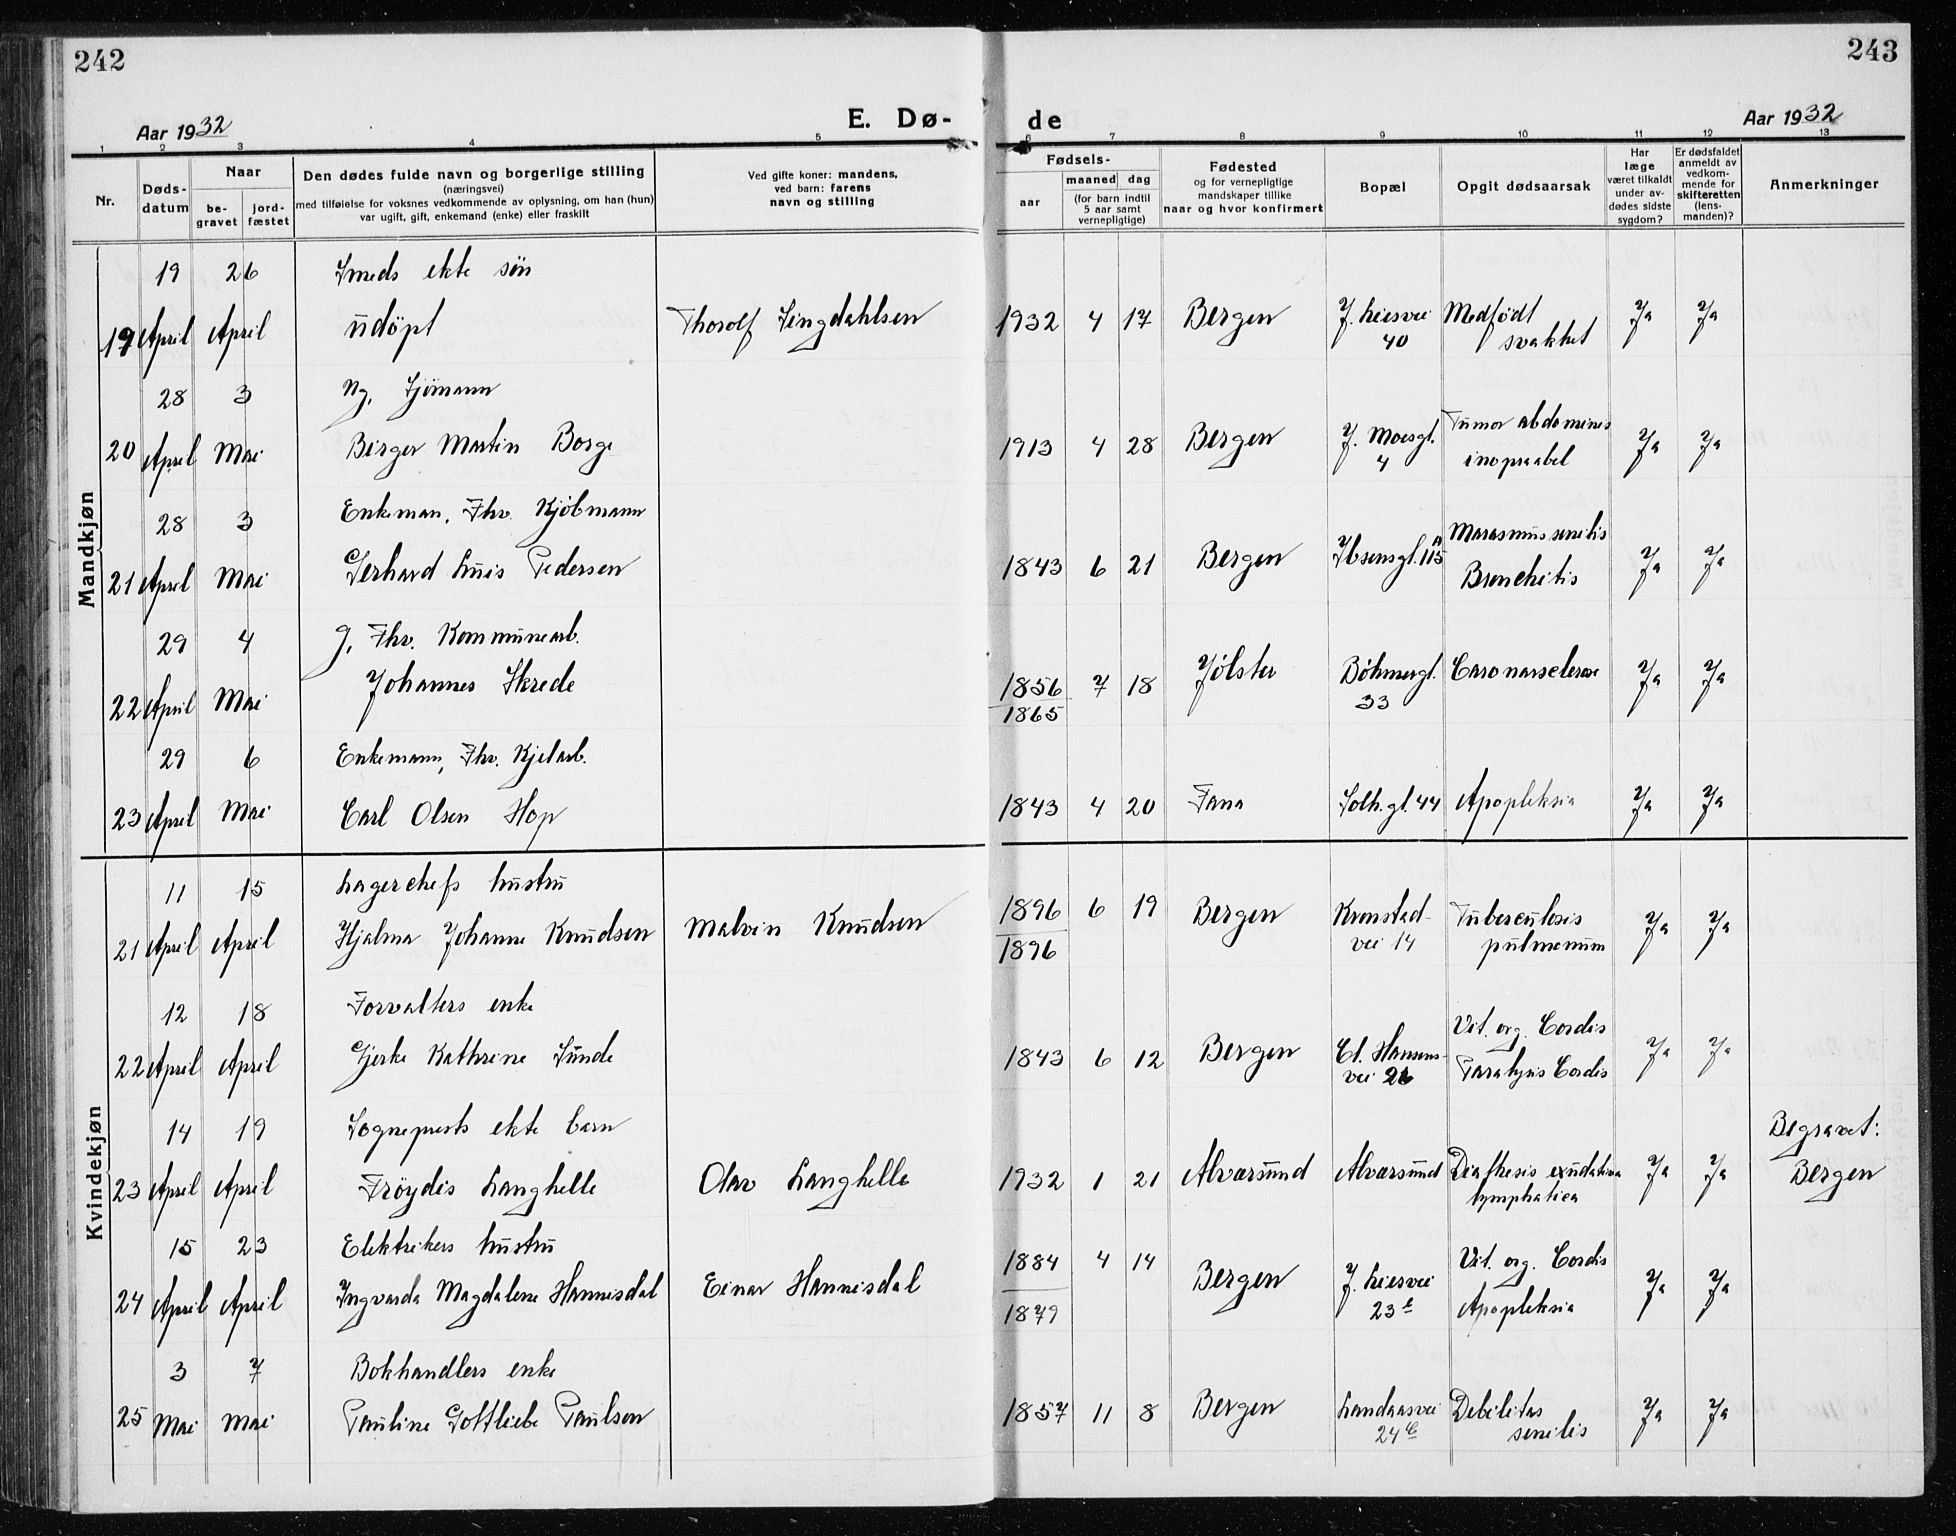 242
243
Aar 1932
E. Dø-
de
Aar 1932
1 2 3 4 5 6 7 8 9 10 11 12 13
Nr.
Døds-
datum
Naar
be-
gravet
jord-
fæstet
Den dødes fulde navn og borgerlige stilling
(næringsvei)
med tilføielse for voksnes vedkommende av oplysning, om han (hun)
var ugift, gift, enkemand (enke) eller fraskilt
Ved gifte koner: mandens,
ved barn: farens
navn og stilling
Fødsels-
aar
maaned
dag
(for barn indtil
5 aar samt
vernepligtige)
Fødested
og for vernepligtige
mandskaper tillike
naar og hvor konfirmert
Bopæl
Opgit dødsaarsak
Har
læge
været tilkaldt
under av-
dødes sidste
sygdom?
Er dødsfaldet
anmeldt av
vedkom-
mende for
skifteretten
(lens-
manden)?
Anmerkninger
Mandkjøn
19 26 Smeds ekte søn
19 April April udöpt Thorolf Lingdahlsen 1932 4 17 Bergen J. Lieisvei Medfödt Ja Ja
40 svakhet
28 3 Ug. Sjömann
20 April Mai Birger Martin Borge 1913 4 28 Bergen J. Moesgt. Tumor abdominis Ja Ja
4 inoprabel
28 3 Enkeman, Fhv. Kjöbmann
21 April Mai Gerhard Luis Pedersen 1843 6 21 Bergen Ibsensgt. 115 Marasmus senilis Ja Ja
Bronchitis
29 4 g, Fhv. Kommunearb.
22 April Mai Johannes Skrede 1856 7 18 Jølster Böhmergt. Ja Ja
1865 33
29 6 Enkemann, Fhv. Kjelarb.
23 April Mai Carl Olsen Hop 1843 4 20 Fana Solh.gt. 44 Apopleksia Ja Ja
Kvindekjøn
11 15 Lagerchefs hustru
21 April April Hjalma Johanne Knudsen Malvin Knudsen 1896 6 19 Bergen Kronstad- Tuberculosis Ja Ja
1896 vei 14 pulmonum
12 18 Forvalters enke
22 April April Gjerke Kathrine Sunde 1843 6 12 Bergen Cl. Hansens- Vit. org. Cordis Ja Ja
vei Paralysis Cordis
14 19 Sogneprests ekte barn Begravet:
23 April April Fröydis Langhelle Olav Langhelle 1932 1 21 Alværsund Alværsund Diathesis exudativa Ja Ja Bergen
lymphatica
15 23 Elektrikers hustru
24 April April Ingvarda Magdalene Hannisdal Einar Hannisdal 1884 4 14 Bergen J. Lieisvei Vit. org. Cordis Ja Ja
1879 23 Apopleksia
3 7 Bokhandlers enke
25 Mai Mai Pauline Gottliebe Paulson 1857 11 8 Bergen Landaasvei Debilitas Ja Ja
24 senilis